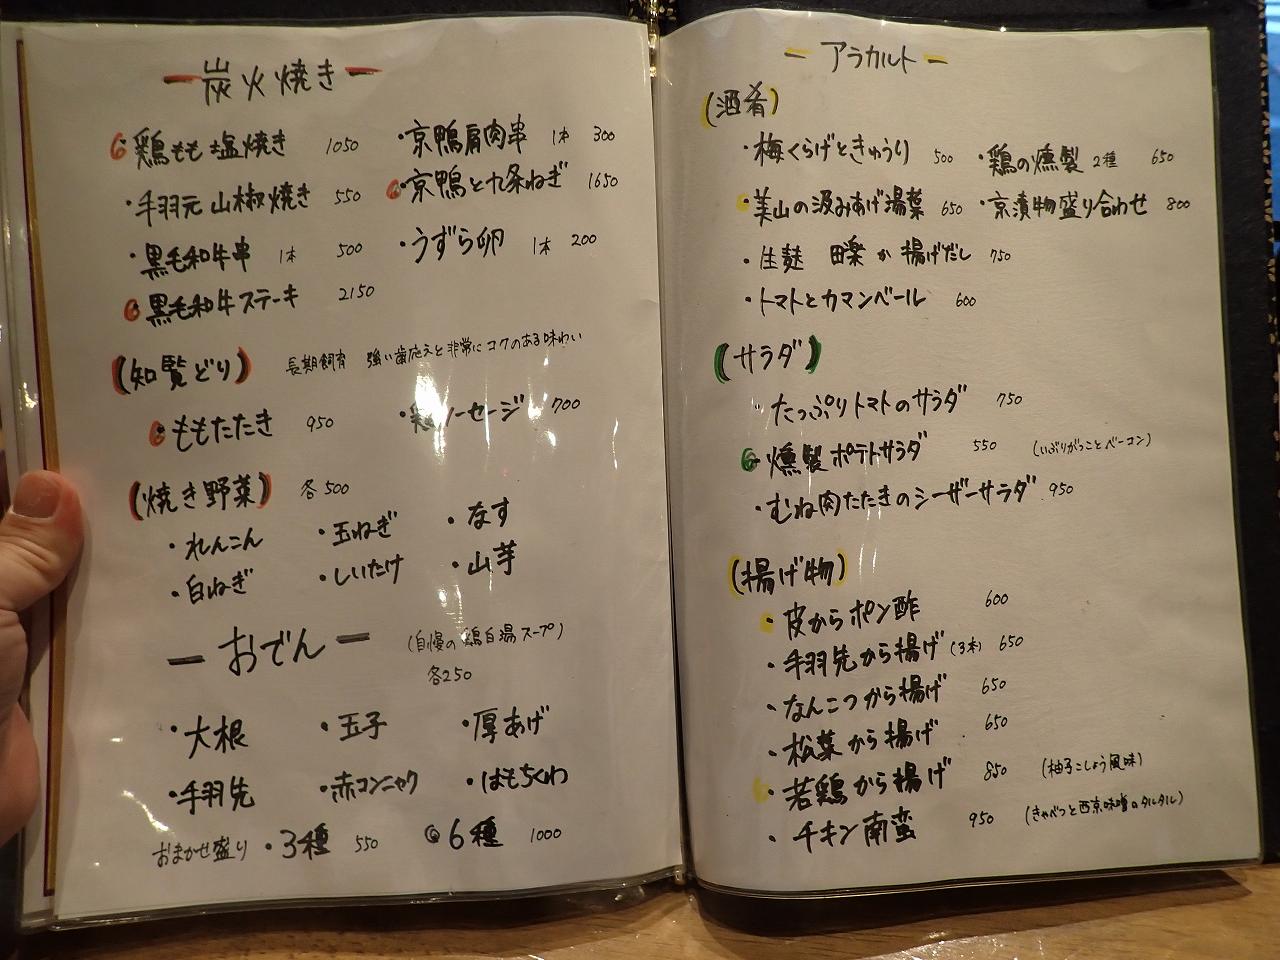 炭火焼き
鶏もも塩焼き 1050
・手羽元 山椒焼き 550
・黒毛和牛串 1本 500
黒毛和牛ステーキ 2150
・京鴨肩肉串 1本 300
・京鴨と九条ねぎ 1650
・うずら卵 1本 200
(知覧どり) 長期飼育 強い歯応えと非常にコクのある味わい
ももたたき 950
・鶏ソーセージ 700
(焼き野菜) 各500
・れんこん ・玉ねぎ ・なす
・白ねぎ ・しいたけ ・山芋
ー おでん ー (自慢の鶏白湯スープ)
各250
・大根 ・玉子 ・厚あげ
・手羽先 ・赤コンニャク ・はもちくわ
おまかせ盛り ・3種 550 6種 1000
ー アラカルト ー
(酒肴)
・梅くらげときゅうり 500 ・鶏の燻製 2種 650
・美山の汲みあげ湯葉 650 ・京漬物盛り合わせ 800
・生麩 田楽 か 揚げだし 750
・トマトとカマンベール 600
(サラダ)
たっぷりトマトのサラダ 750
燻製ポテトサラダ 550 (いぶりがっことベーコン)
・むね肉たたきのシーザーサラダ 950
(揚げ物)
・皮からポン酢 600
・手羽先から揚げ (3本) 650
・なんこつから揚げ 650
・松葉から揚げ 650
・若鶏から揚げ 850 (柚子こしょう風味)
・チキン南蛮 950 (きゃべつと西京味噌のタルタル)